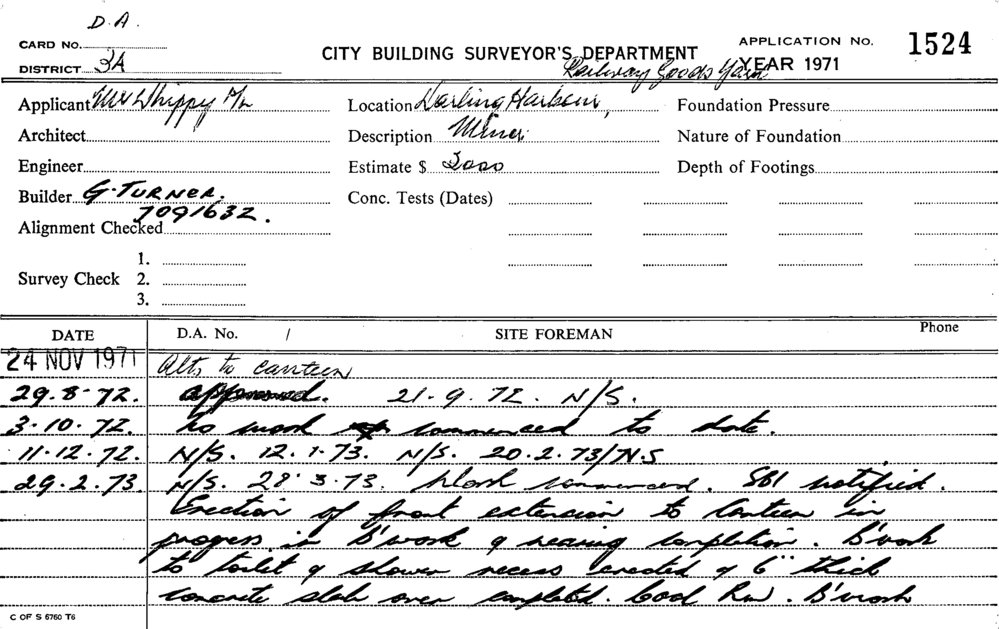 D.A.
CARD No.
CITY BUILDING SURVEYOR'S DEPARTMENT
APPLICATION No. 1524
DISTRICT 3A
Railway Goods Yard
YEAR 1971
Applicant Mr Whippy P/L
Location Darling Harbour,
Foundation Pressure
Architect
Description Minor
Nature of Foundation
Engineer
Estimate $ 3000
Depth of Footings
Builder G. TURNER.
Conc. Tests (Dates)
7091632.
Alignment Checked
1.
Survey Check 2.
3.
DATE D.A. No. / SITE FOREMAN Phone
24 NOV 1971 Alts to canteen
29.8.72. approved. 21.9.72. N/S.
3.10.72. No work commenced to date.
11.12.72. N/S. 12.1.73. N/S. 20.2.73/N.S
29.2.73. N/S. 28.3.73. Work commenced. SBI notified.
Erection of front extension to Canteen in
progress in B'work & nearing completion. B'work
to toilet & shower recess erected & 6" thick
concrete slab over completed. Cool Rm. B'work
C OF S 6760 T6